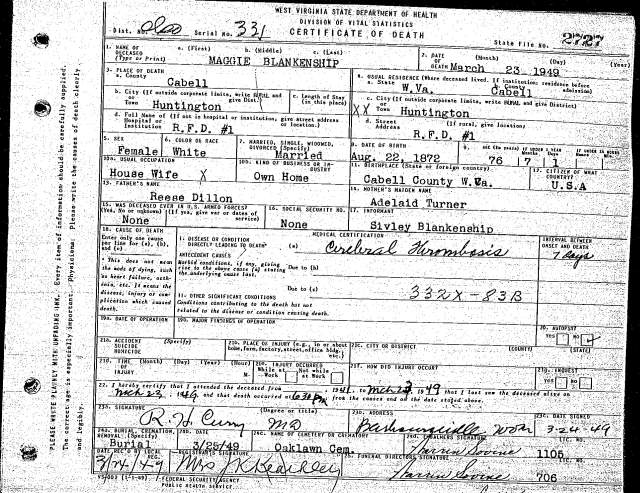 WEST VIRGINIA STATE DEPARTMENT OF HEALTH
DIVISION OF VITAL STATISTICS
CERTIFICATE OF DEATH
Dist. No. Serial No. 331 State File No. 2727
1. NAME OF DECEASED (Type or Print) a. (First) b. (Middle) c. (Last)
MAGGIE BLANKENSHIP
2. DATE OF DEATH (Month) (Day) (Year)
March 23 1949
3. PLACE OF DEATH
a. County
Cabell
4. USUAL RESIDENCE (Where deceased lived. If institution: residence before admission)
a. State b. County
W.Va. Cabell
b. City (If outside corporate limits, write RURAL and give Dist.) or Town
Huntington
c. Length of Stay (in this place)
c. City (If outside corporate limits, write RURAL and give District) or Town
XX Huntington
d. Full Name of (If not in hospital or institution, give street address or location) Hospital or Institution
R.F.D. #1
d. Street Address (If rural, give location)
R.F.D. #1
5. SEX
Female
6. COLOR OR RACE
White
7. MARRIED, SINGLE, WIDOWED, DIVORCED (Specify)
Married
8. DATE OF BIRTH
Aug. 22, 1872
9.
76 7 1
10a. USUAL OCCUPATION
House Wife X
10b. KIND OF BUSINESS OR INDUSTRY
Own Home
11. BIRTHPLACE (State or foreign country)
Cabell County W.Va.
12. CITIZEN OF WHAT COUNTRY?
U.S.A
13. FATHER'S NAME
Reese Dillon
14. MOTHER'S MAIDEN NAME
Adelaid Turner
15. WAS DECEASED EVER IN U.S. ARMED FORCES?
(Yes, No or unknown) (If yes, give war or dates of service)
None
16. SOCIAL SECURITY NO.
None
17. INFORMANT
Sivley Blankenship
18. CAUSE OF DEATH
Enter only one cause per line for (a), (b), and (c)
MEDICAL CERTIFICATION
I. DISEASE OR CONDITION DIRECTLY LEADING TO DEATH (a) Cerebral Thrombosis
INTERVAL BETWEEN ONSET AND DEATH
7 days
* This does not mean the mode of dying, such as heart failure, asthenia, etc. It means the disease, injury or complication which caused death.
ANTECEDENT CAUSES
Morbid conditions, if any, giving rise to the above cause (a) stating the underlying cause last.
Due to (b)
Due to (c)
332X-83B
II. OTHER SIGNIFICANT CONDITIONS
Contributing to the death but not related to the disease or condition causing death.
19a. DATE OF OPERATION
19b. MAJOR FINDINGS OF OPERATION
20. AUTOPSY
Yes No
21a. ACCIDENT SUICIDE HOMICIDE (Specify)
21b. PLACE OF INJURY (e.g., in or about home, farm, factory, street, office bldg., etc.)
21c. CITY OR DISTRICT (COUNTY) (STATE)
21d. TIME OF INJURY (Month) (Day) (Year) (Hour)
21e. INJURY OCCURRED
While at Work Not While at Work
21f. HOW DID INJURY OCCUR?
22. I hereby certify that I attended the deceased from to Mch 23, 1949 that I last saw the deceased alive on
Mch 23, 1949 and that death occurred at from the causes and on the date stated above.
23a. SIGNATURE (Degree or title)
MD
23b. ADDRESS
Barboursville W.Va.
23c. DATE SIGNED
3-24-49
24a. BURIAL, CREMATION, REMOVAL (Specify)
Burial
24b. DATE
3/25/49
24c. NAME OF CEMETERY OR CREMATORY
Oaklawn Cem.
LIC. NO.
1105
DATE REC'D BY LOCAL REG.
3/24/49
REGISTRAR'S SIGNATURE
25. FUNERAL DIRECTORS SIGNATURE LIC. NO.
706
FEDERAL SECURITY AGENCY
PUBLIC HEALTH SERVICE
PLEASE WRITE PLAINLY WITH UNFADING INK. Every item of information should be carefully supplied.
The correct age is especially important. Physicians: Please write the causes of death clearly
and legibly.